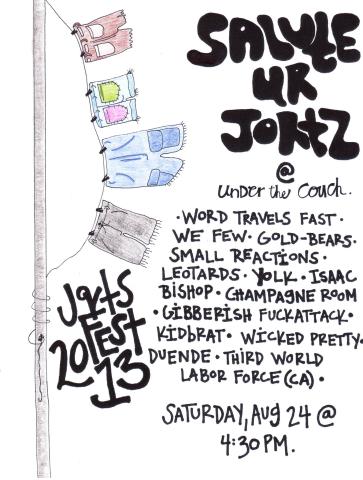 SALUTE
UR
JORTZ
@
under the Couch.
· WORD TRAVELS FAST ·
WE FEW · GOLD-BEARS ·
SMALL REACTIONS ·
LEOTARDS · YOLK · ISAAC
BISHOP · CHAMPAGNE ROOM
· GIBBERISH FUCKATTACK ·
KIDBRAT · WICKED PRETTY ·
DUENDE · THIRD WORLD
LABOR FORCE (CA) ·
SATURDAY, AUG 24 @
4:30 PM.
Jorts
FEST
2013